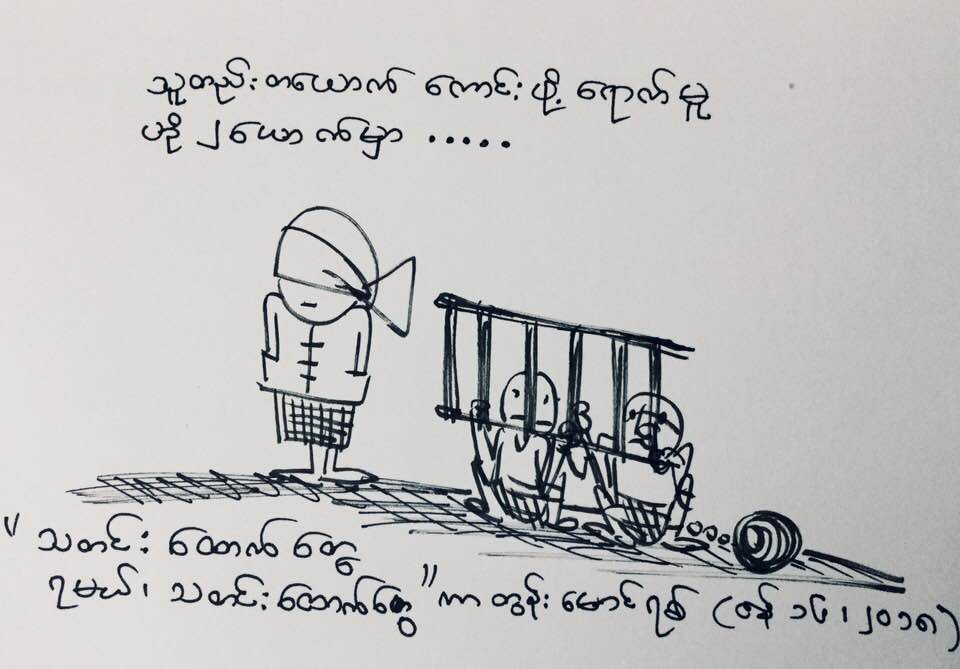 သူတည်းတယောက် ကောင်းဖို့ရောက်မူ
ဟို ၂ယောက်မှာ .....
"သတင်းထောက်တွေ
ရမယ်၊ သတင်းထောက်တွေ" ကာတွန်း မောင်ရစ် (ဇန် ၁၆၊ ၂၀၁၈)